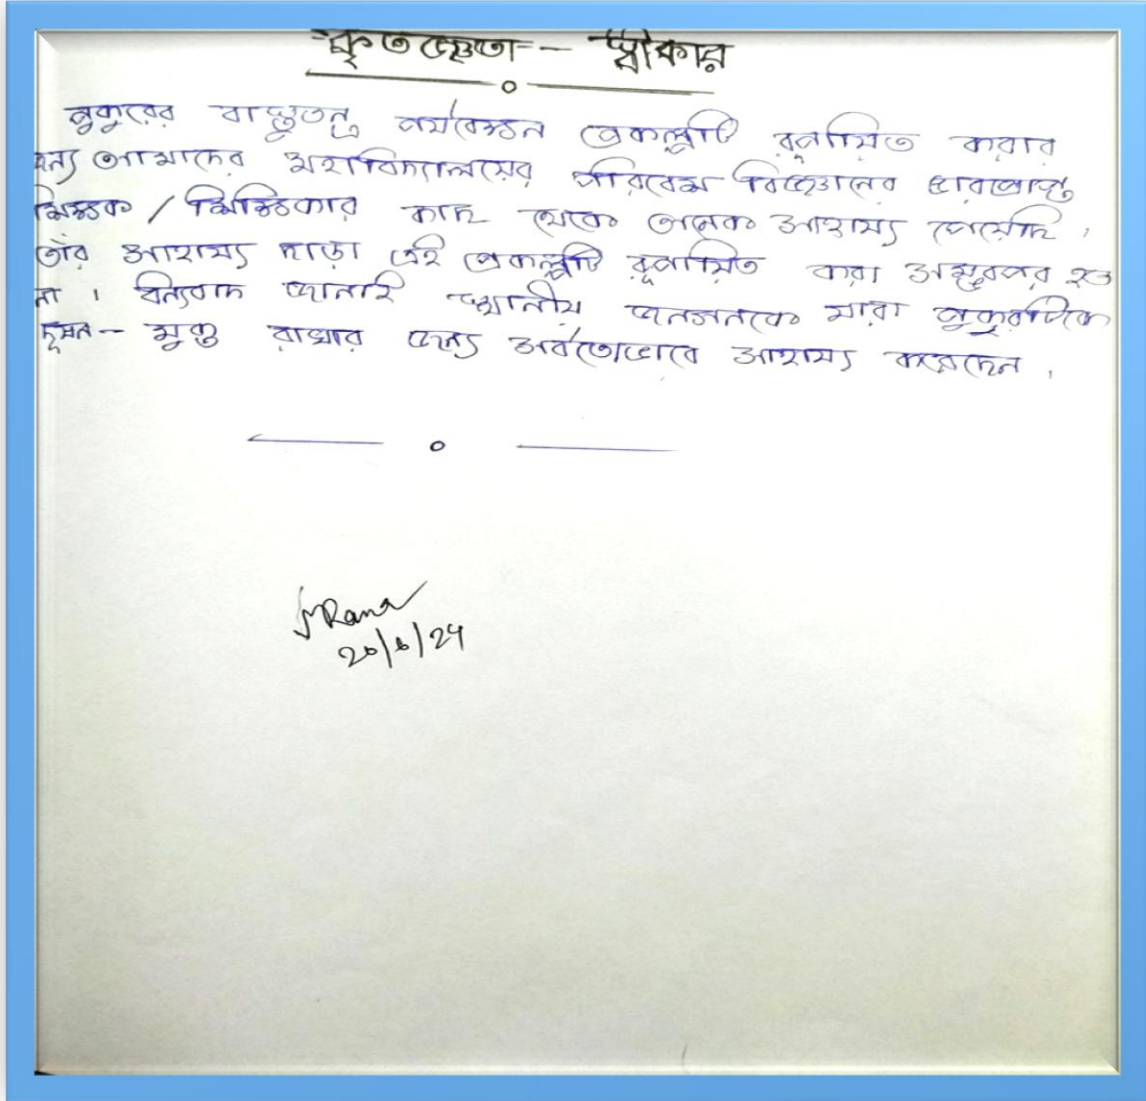 কৃতজ্ঞতা-- স্বীকার
পুকুরের বাস্তুতন্ত্র পর্যবেক্ষন প্রকল্পটি রূপায়িত করার
জন্য আমাদের মহাবিদ্যালয়ের পরিবেশ বিজ্ঞানের ভারপ্রাপ্ত
শিক্ষক / শিক্ষিকার কাছ থেকে অনেক সাহায্য পেয়েছি ।
তাঁর সাহায্য ছাড়া এই প্রকল্পটি রূপায়িত করা সম্ভবপর হত
না । ধন্যবাদ জানাই স্থানীয় জনগনকে যারা পুকুরটিকে
দূষন-- মুক্ত রাখার জন্য সর্বতোভাবে সাহায্য করেছেন ।
SRana
20/6/24